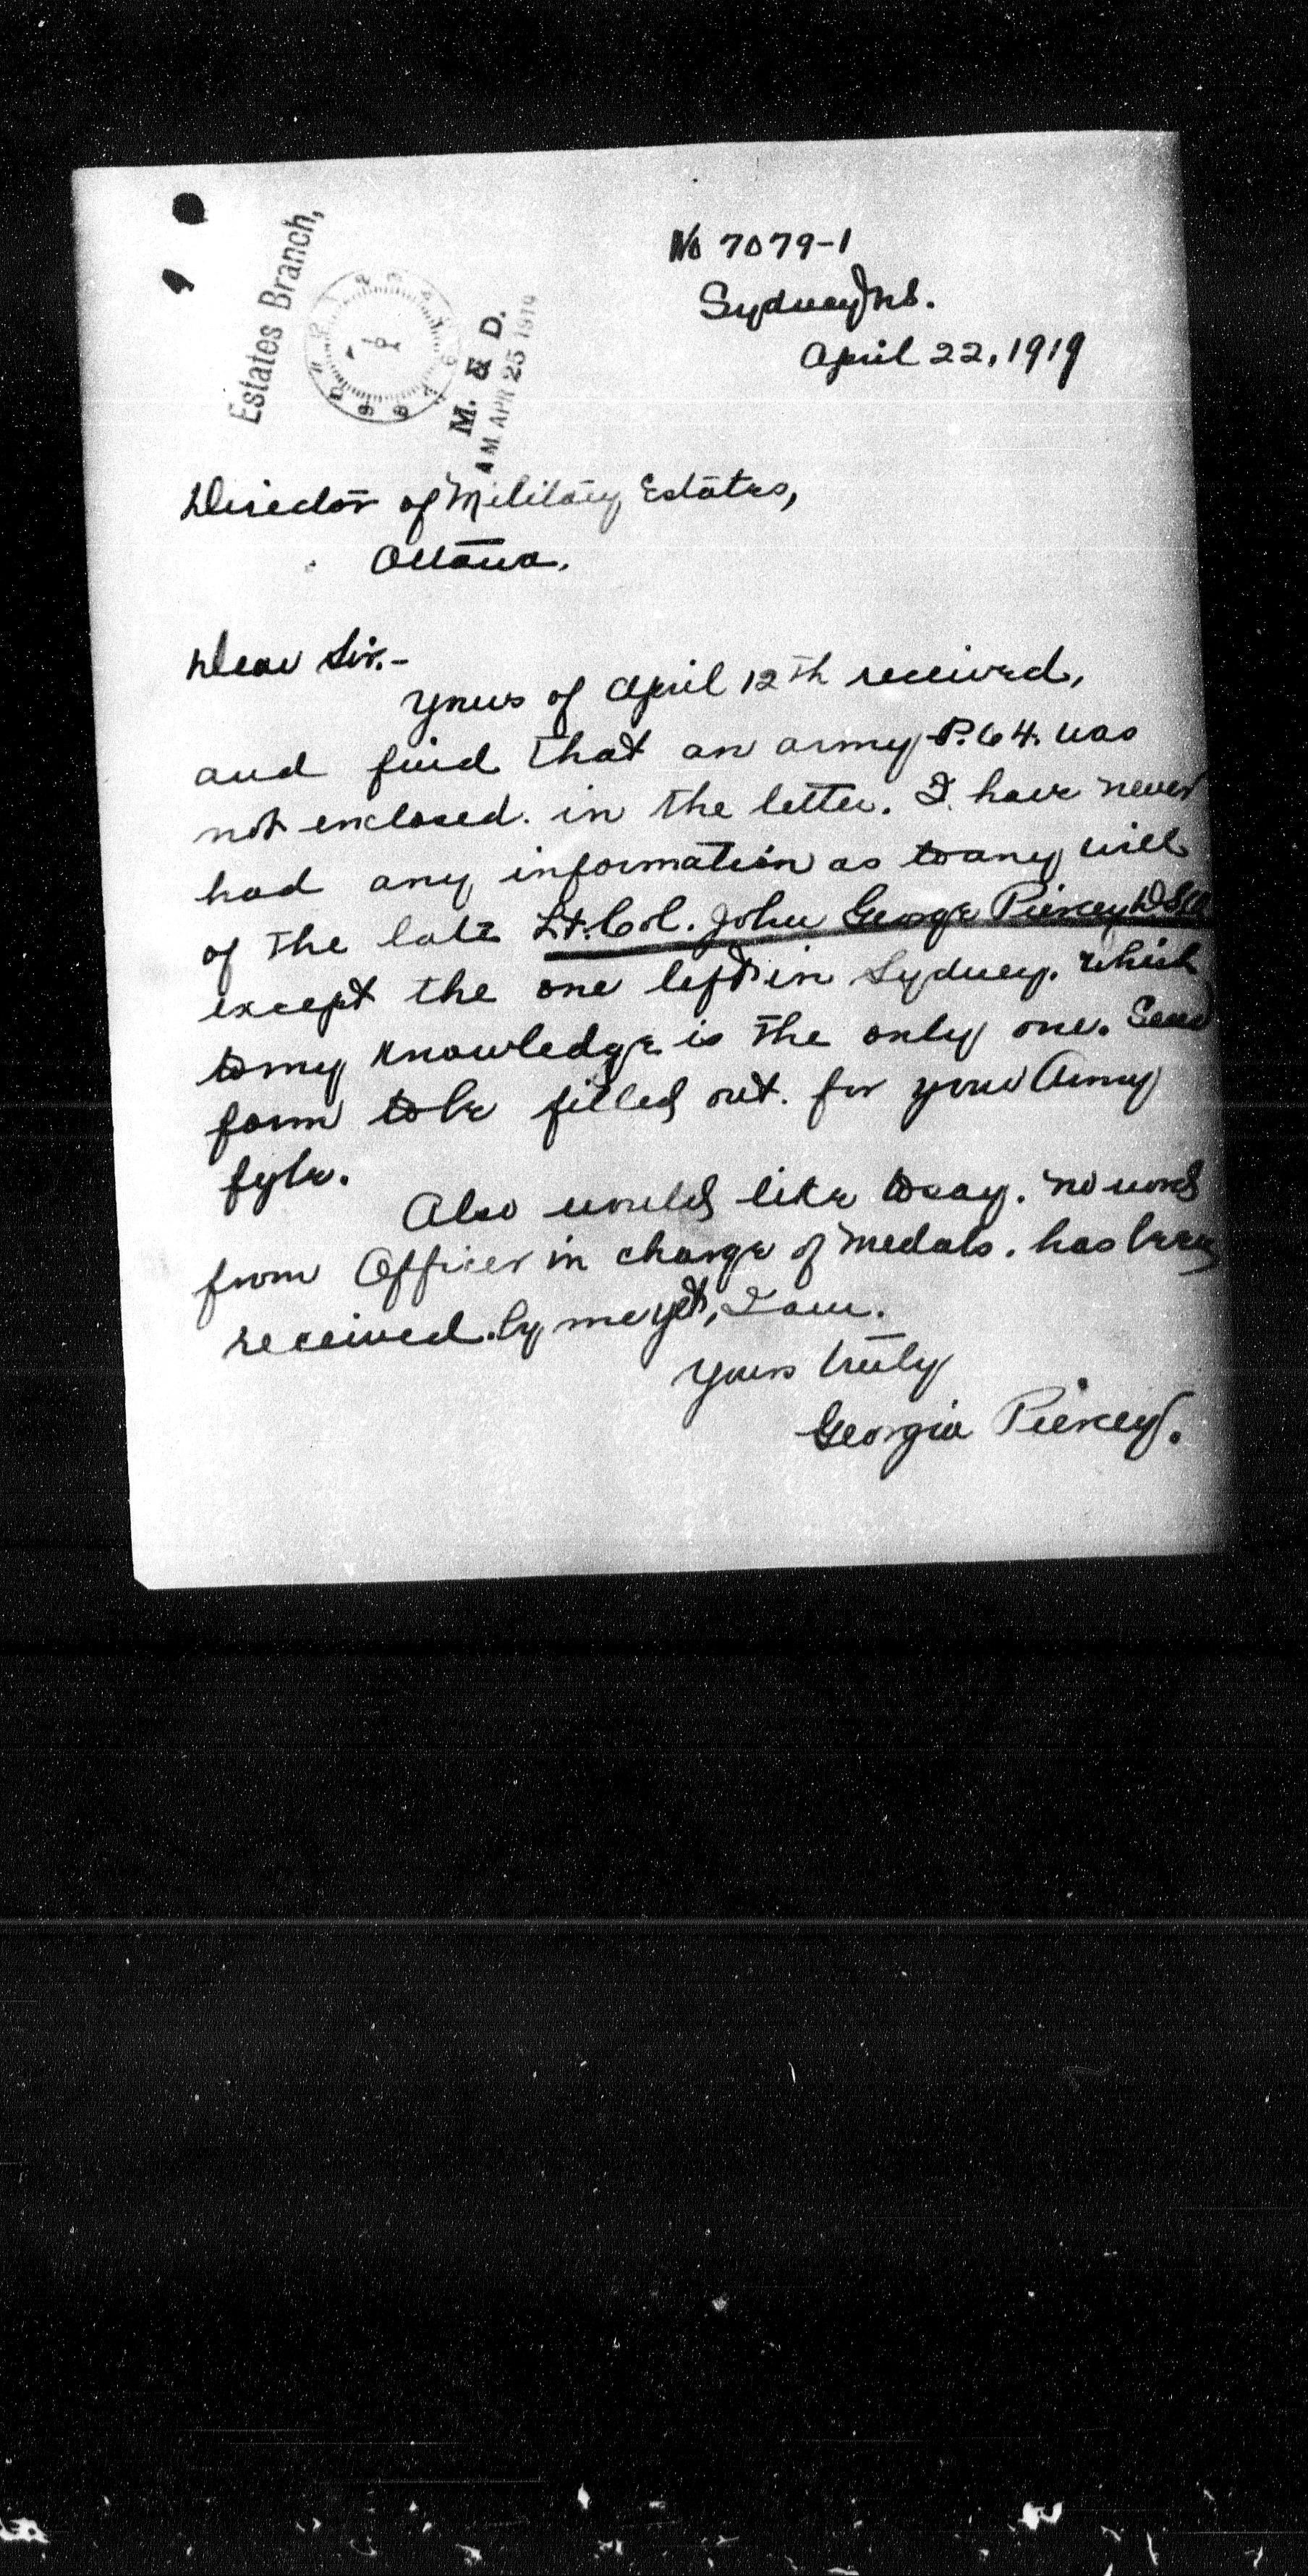 Estates Branch,
M. & D.
AM APR 25 1919
No 7079-1
Sydney N.S.
April 22, 1919
Director of Military Estates,
Ottawa.
Dear Sir.-
Yours of April 12th received,
and find that an army P.64. was
not enclosed. in the letter. I have never
had any information as to any will
of the late Lt. Col. John George Piercey D.S.O
except the one left in Sydney. which
to my knowledge is the only one. Send
form to be filled out. for your Army
fyle.
Also would like to say. no word
from Officer in charge of medals. has been
received. by me yet, I am.
Yours truly
Georgia Piercey.